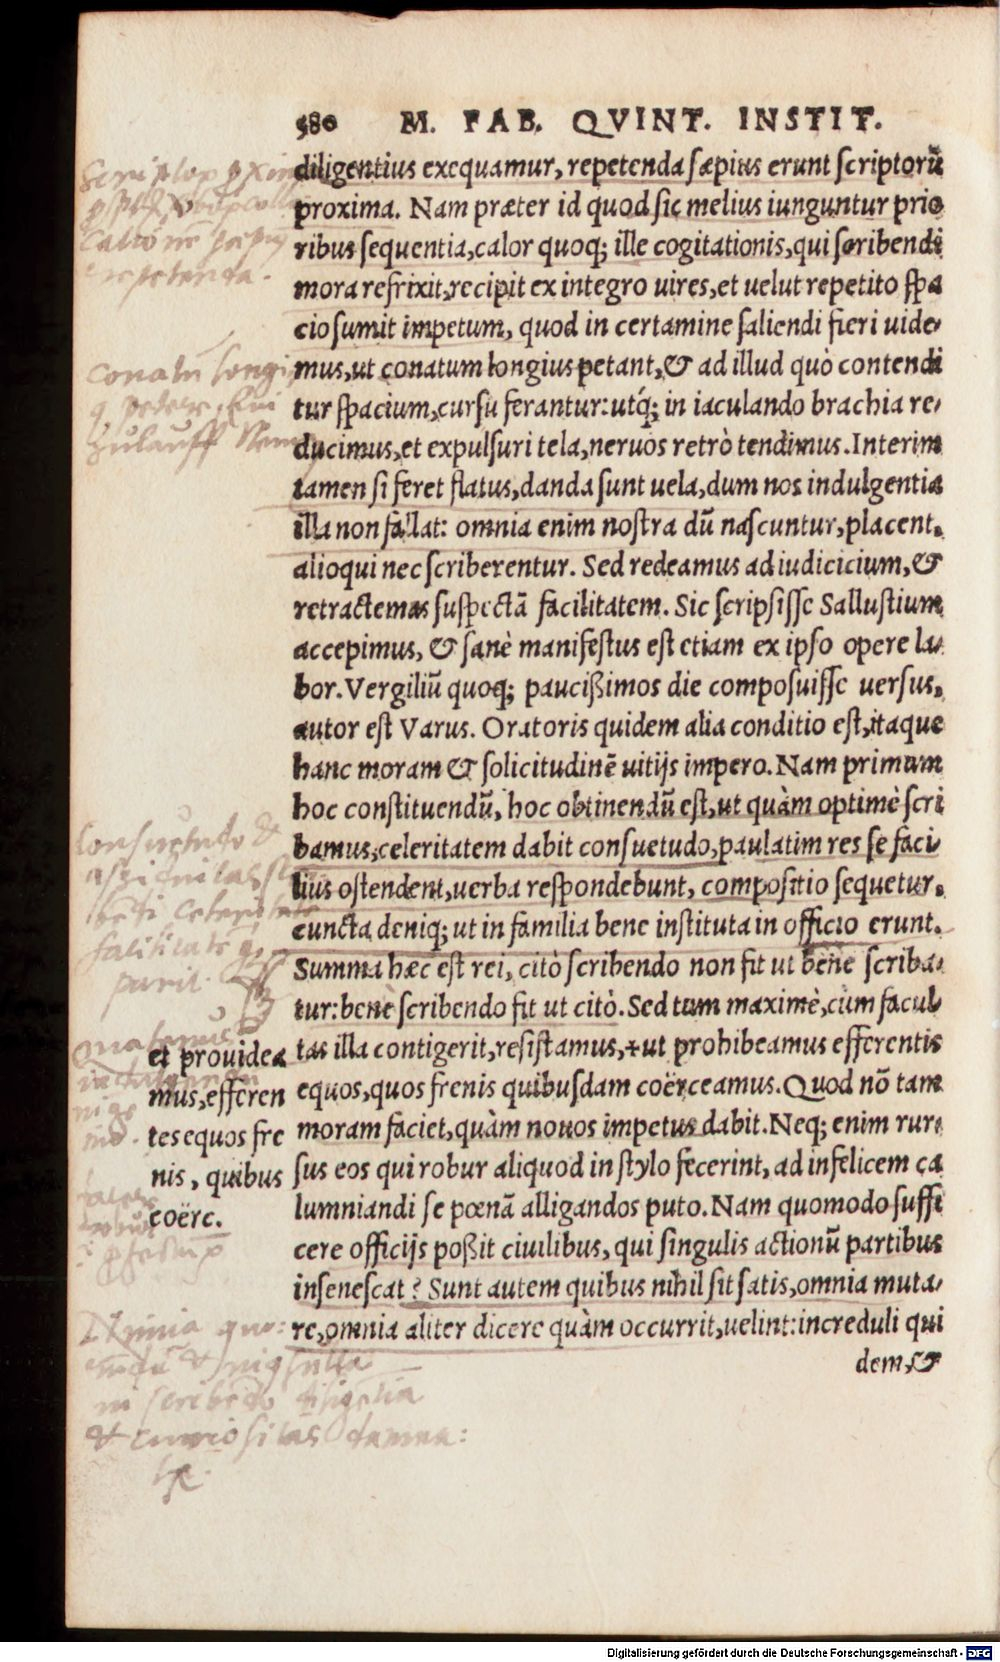 580 M. FAB. QVINT. INSTIT.
diligentius exequamur, repetenda sæpius erunt scriptorũ
proxima. Nam præter id quod sic melius iunguntur prio
ribus sequentia, calor quoq; ille cogitationis, qui scribendi
mora refrixit, recipit ex integro uires, et uelut repetito spa
cio sumit impetum, quod in certamine saliendi fieri uide-
mus, ut conatum longius petant, & ad illud quò contendi
tur spacium, cursu ferantur: utq́; in iaculando brachia re-
ducimus, et expulsuri tela, neruos retrò tendimus. Interim
tamen si feret flatus, danda sunt uela, dum nos indulgentia
illa non fallat: omnia enim nostra dũ nascuntur, placent,
alioqui nec scriberentur. Sed redeamus ad iudicicium, &
retractemus suspectã facilitatem. Sic scripsisse Sallustium
accepimus, & sanè manifestus est etiam ex ipso opere la-
bor. Vergiliũ quoq; paucißimos die composuisse uersus,
autor est Varus. Oratoris quidem alia conditio est, itaque
hanc moram & solicitudinẽ uitijs impero. Nam primum
hoc constituendũ, hoc obtinendũ est, ut quàm optimè scri
bamus, celeritatem dabit consuetudo, paulatim res se faci-
lius ostendent, uerba respondebunt, compositio sequetur,
cuncta deniq; ut in familia bene instituta in officio erunt.
Summa hæc est rei, citò scribendo non fit ut bene scriba-
tur: benè scribendo fit ut citò. Sed tum maximè, cùm facul
tas illa contigerit, resistamus, + ut prohibeamus efferentis
equos, quos frenis quibusdam coërceamus. Quod nõ tam
moram faciet, quàm nouos impetus dabit. Neq; enim rur-
sus eos qui robur aliquod in stylo fecerint, ad infelicem ca
lumniandi se pœnã alligandos puto. Nam quomodo suffi
cere officijs poßit ciuilibus, qui singulis actionũ partibus
insenescat? Sunt autem quibus nihil sit satis, omnia muta-
re, omnia aliter dicere quàm occurrit, uelint: increduli qui
dem, &
et prouidea
mus, efferen
tes equos fre
nis, quibus
coërc.
repetenda.
conatũ longi
Zulauff
Consuetudo &
parit.
in scribẽdo diligẽtia
& curiositas
Digitalisierung gefördert durch die Deutsche Forschungsgemeinschaft - DFG